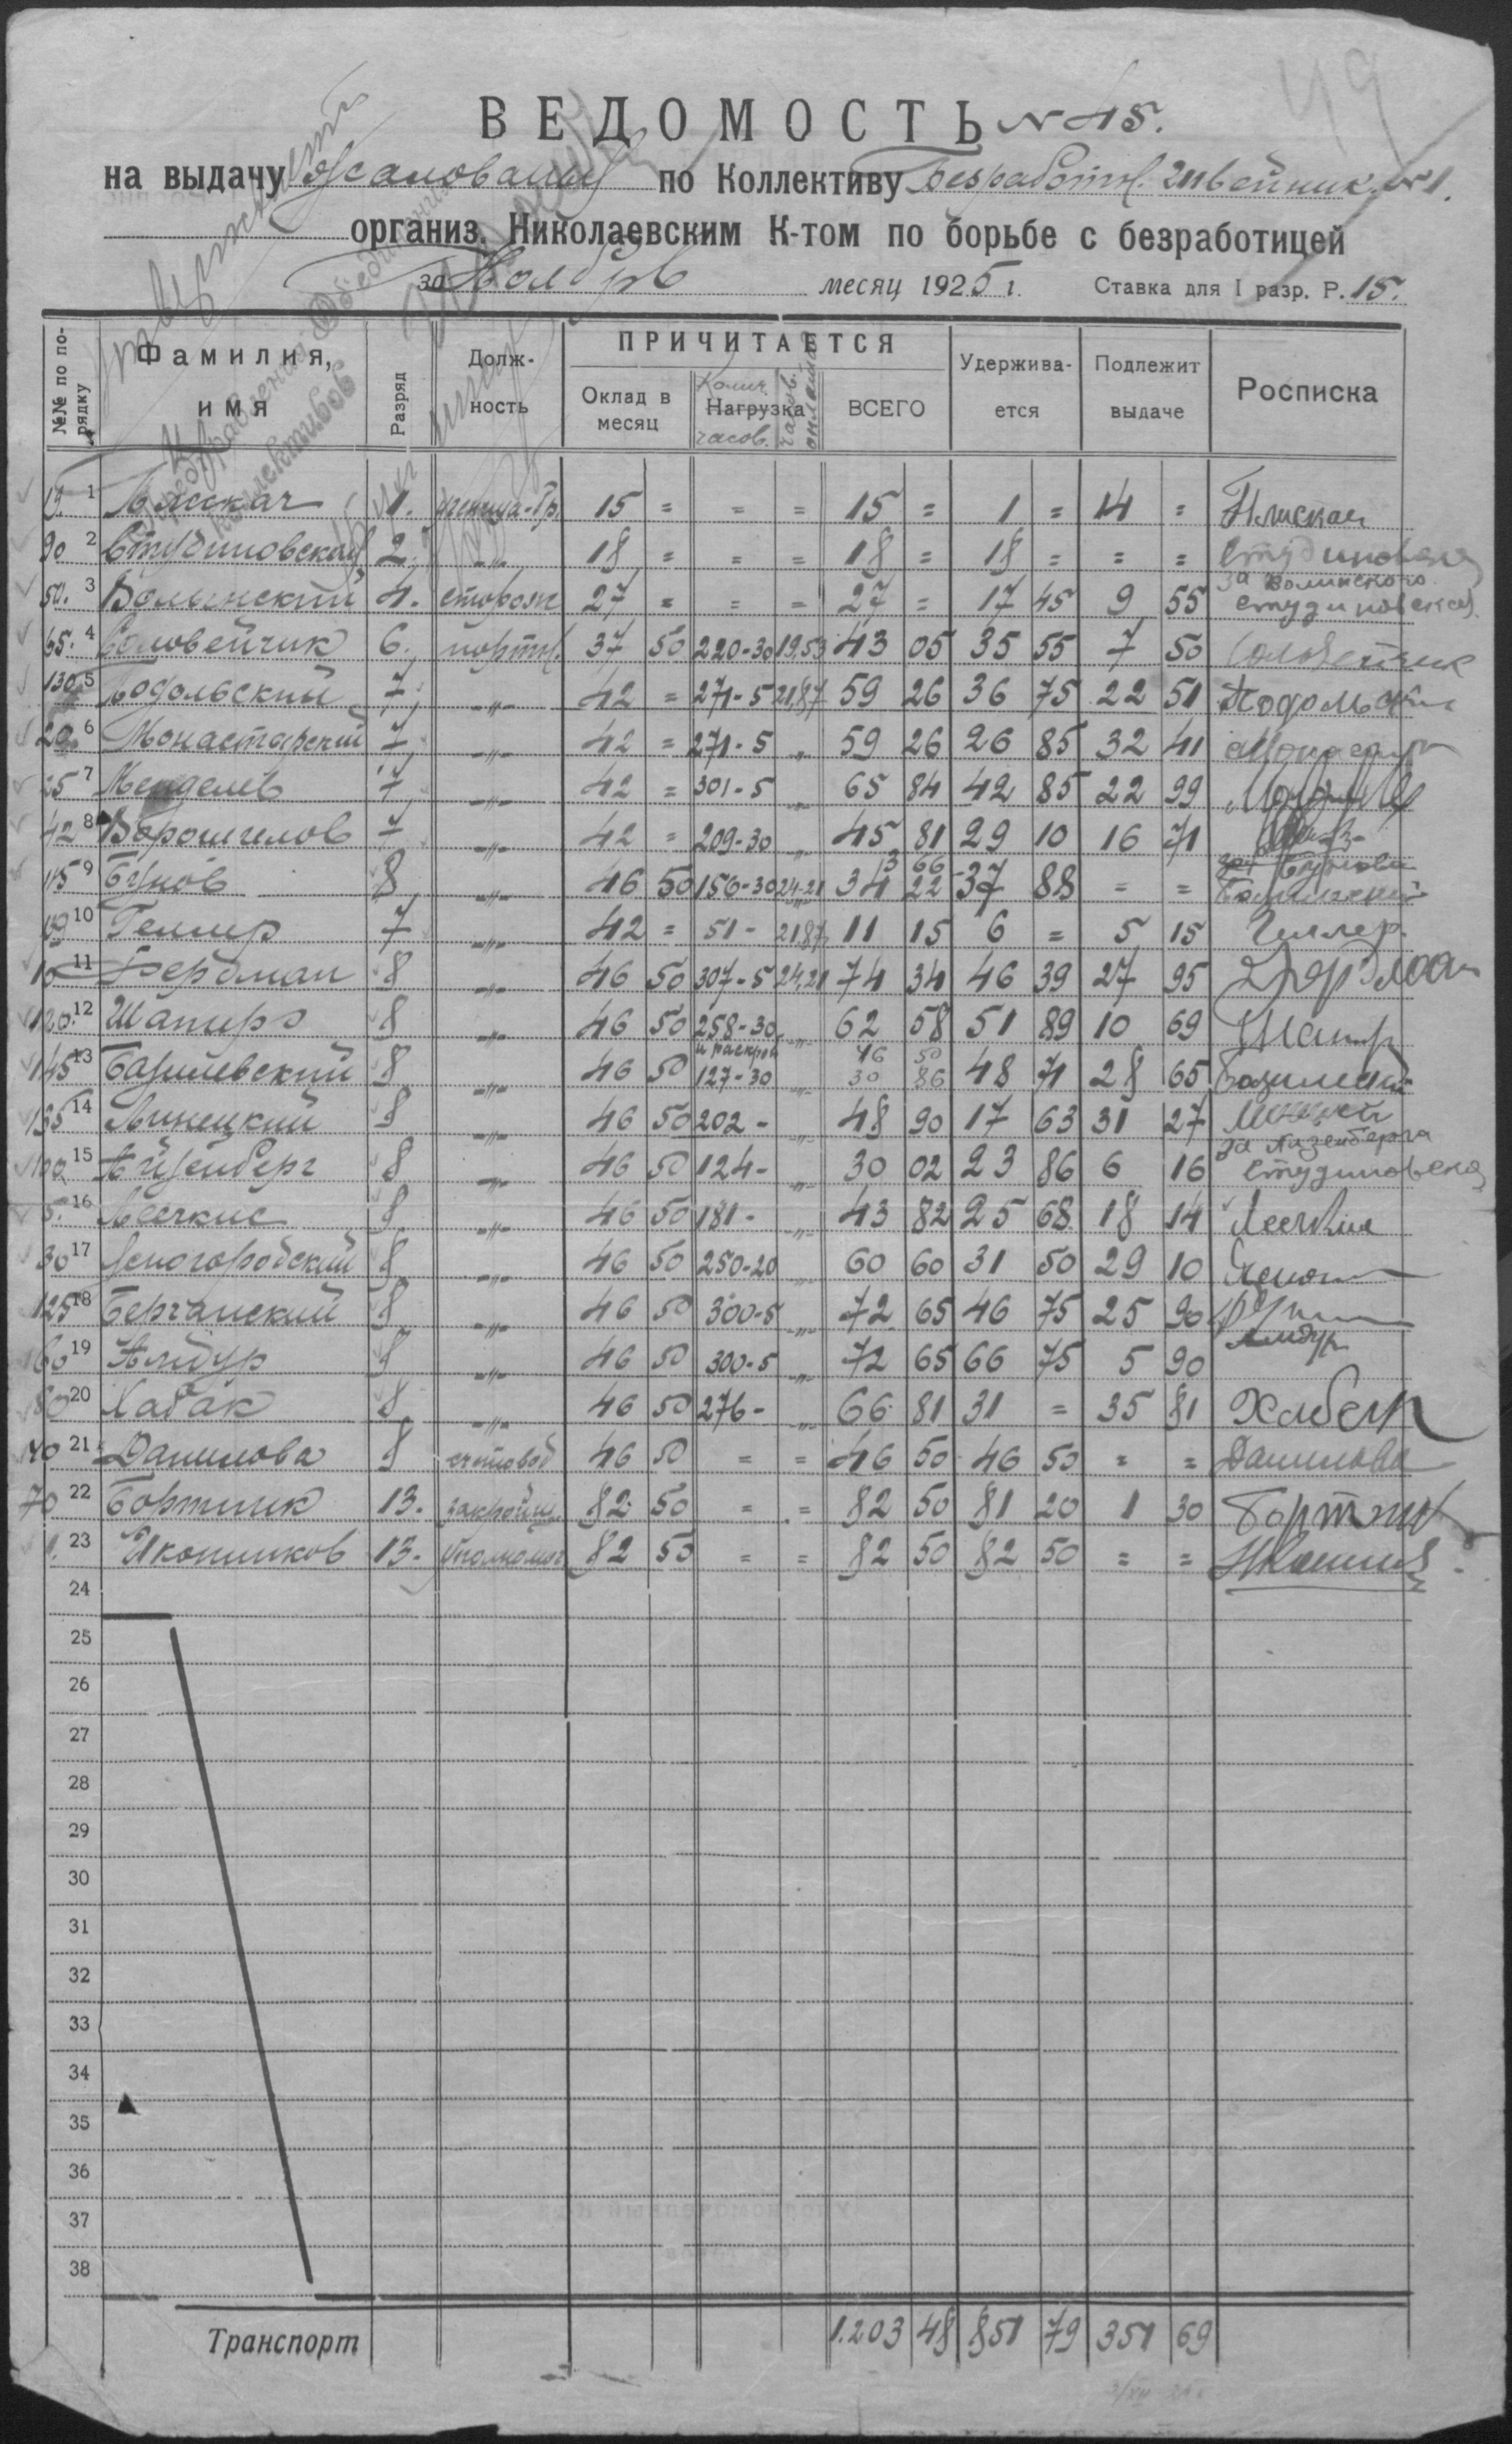 49
ВЕДОМОСТЬ № 45.
на выдачу жалования по Коллективу безработн. швейник. №1.
организ. Николаевским К-том по борьбе с безработицей
за Ноябрь месяц 1925 г. Ставка для I разр. Р. 15.
№№ по порядку Фамилия, имя Разряд Должность ПРИЧИТАЕТСЯ Удерживается Подлежит выдаче Росписка
Оклад в месяц Колич. Нагрузка часов. ВСЕГО
1 1. ученица-гр. 15 = = = 15 = 1 = 14 =
90 2 Студиновская 2. -"- 18 = = = 18 = 18 = = = Студиновская
50. 3 Волынский 4. сторож 27 = = = 27 = 17 45 9 55 за Волинского Студиновская
65. 4 Соловейчик 6. портн. 37 50 220-30 19,53 43 05 35 55 7 50 Соловейчик
130 5 Подольский 7 -"- 42 = 271-5 21,87 59 26 36 75 22 51 Подольский
20 6 Монастырский 7 -"- 42 = 271-5 " 59 26 26 85 32 41
25 7 Менделев 7 -"- 42 = 301-5 " 65 84 42 85 22 99
42 8 Ворошилов 7 -"- 42 = 209-30 " 45 81 29 10 16 71
115 9 Бунов 8 -"- 46 50 156-30 24-21 34 22 3 66 37 88 = =
10 Геллер 7 -"- 42 = 51- 21,87 11 15 6 = 5 15 Геллер.
10 11 Фердман 8 -"- 46 50 307-5 24,21 74 34 46 39 27 95 Фердман
120. 12 Шапиро 8 -"- 46 50 258-30 " 62 58 51 89 10 69 Шапир
145 13 Базилевский 8 46 50 и раскрой 127-30 " 46 50 30 86 48 71 28 65
135 14 Линецкий 8 -"- 46 50 202- " 48 90 17 63 31 27
100 15 Айзенберг 8 -"- 46 50 124- " 30 02 23 86 6 16 за Айзенберга Студиновская
5. 16 8 -"- 46 50 181- " 43 82 25 68 18 14
30 17 Ясногородский 8 -"- 46 50 250-20 " 60 60 31 50 29 10
125 18 Берчанский 8 -"- 46 50 300-5 " 72 65 46 75 25 90
60 19 Альдур 8 -"- 46 50 300-5 " 72 65 66 75 5 90 Альдур
80 20 Хабак 8 -"- 46 50 276- " 66 81 31 = 35 81
40 21 Данилова 8 счетовод 46 50 = = 46 50 46 50 = = Данилова
70 22 Бортник 13. закройщ. 82 50 = = 82 50 81 20 1 30 Бортник
1. 23 Иконников 13. Уполномоч. 82 50 = = 82 50 82 50 = =
24
25
26
27
28
29
30
31
32
33
34
35
36
37
38
Транспорт 1.203 48 851 79 351 69